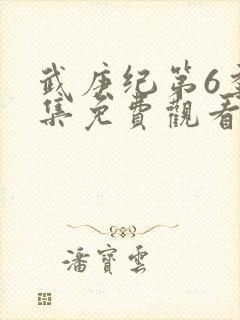 武庚纪第6季
集免費觀看
潘寶雲